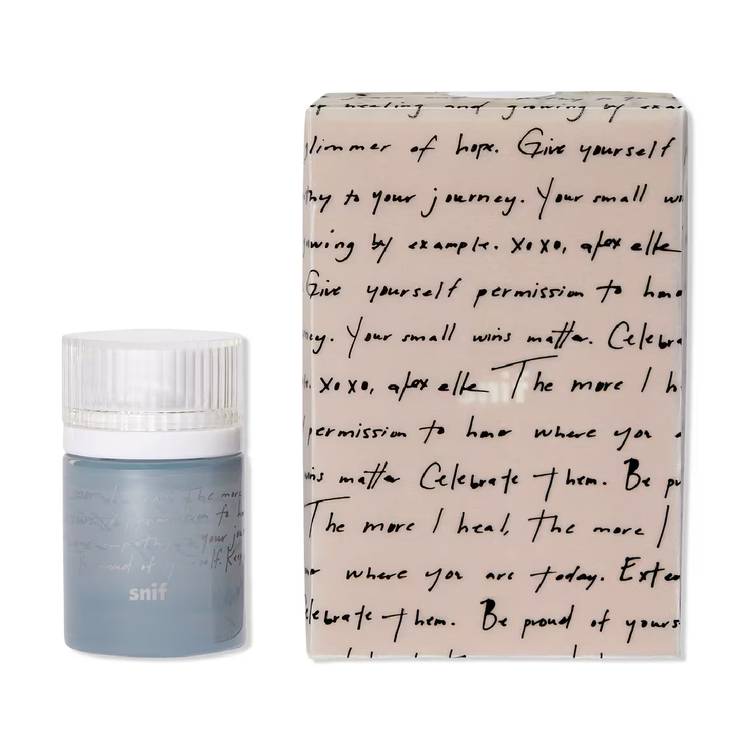 of healing and growing by exam
glimmer of hope. Give yourself
thy to your journey. Your small wi
owing by example. xoxo, alex elle
Give yourself permission to hono
ney. Your small wins matter. Celebra
. xoxo, alex elle The more I h
permission to honor where you a
wins matter Celebrate them. Be pr
The more I heal, the more I
or where you are today. Exten
Celebrate them. Be proud of yours
the more
to h
empathy to your jour
to proud of yourself. Keep
snif